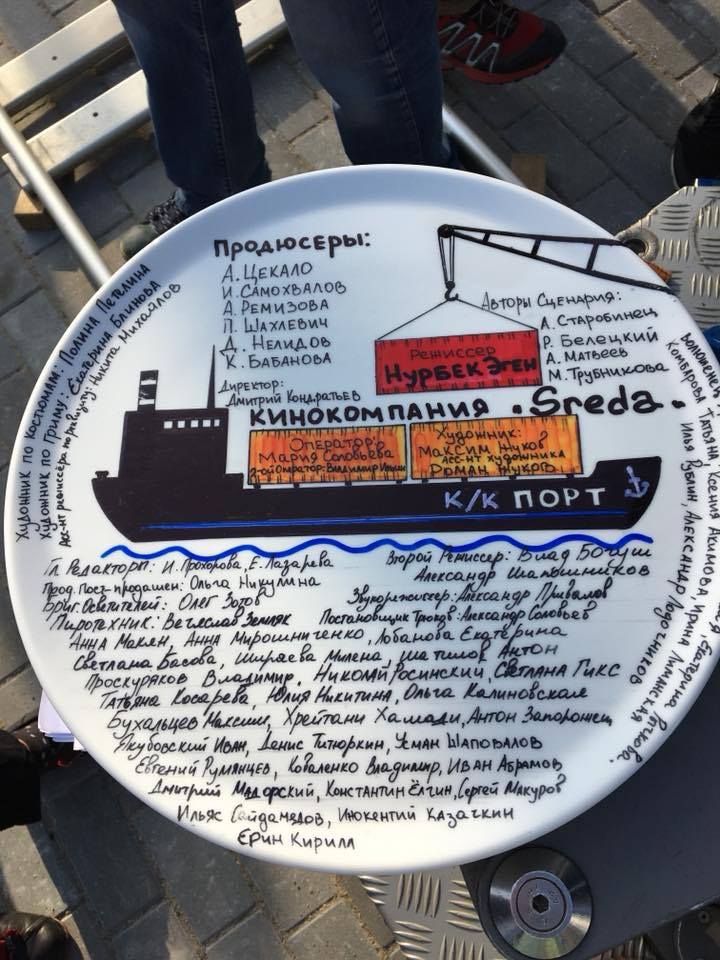 Продюсеры:
А. Цекало
И. Самохвалов
А. Ремизова
П. Шахлевич
Д. Нелидов
К. Бабанова
Директор:
Дмитрий Кондратьев
Авторы Сценария:
А. Старобинец
Р. Белецкий
А. Матвеев
М. Трубникова
Режиссер
Нурбек Эген
КИНОКОМПАНИЯ .Sreda.
Оператор:
Мария Соловьёва
2-ой Оператор: Владимир
Художник:
Максим Жуков
Асс-нт художника
Роман Жуков
К/К ПОРТ
Художник по костюмам: Полина Петелина
Художник по Гриму: Екатерина Блинова
Асс-нт режиссёра по реквизиту: Никита Михайлов
Гл. Редактор: И. Прохорова, Е. Лазарева
Прод. Пост-продакшен: Ольга Никулина
Бриг. Осветителей: Олег Зотов
Пиротехник: Вячеслав Земляк
Второй Режиссер: Влад Богуш
Александр Шапошников
Звукорежиссер: Александр Привалов
Постановщик Трюков: Александр Соловьев
Анна Макян, Анна Мирошниченко, Лобанова Екатерина
Светлана Басова, Ширяева Милена, Шатилов Антон
Проскуряков Владимир, Николай Росинский, Светлана Гикс
Татьяна Косарева, Юлия Никитина, Ольга Калиновская
Бухальцев Максим, Хрейтани Хамади, Антон Запорожец
Якубовский Иван, Денис Титюркин, Усман Шаповалов
Евгений Румянцев, Коваленко Владимир, Иван Абрамов
Дмитрий Мадорский, Константин Ёлгин, Сергей Макуров
Ильяс Сайдамедов, Инокентий Казачкин
Ерин Кирилл
Комбарова Татьяна, Ксения Акимова, Ирина Лиманская
Илья Рублин, Александр Лодочников
Екатерина